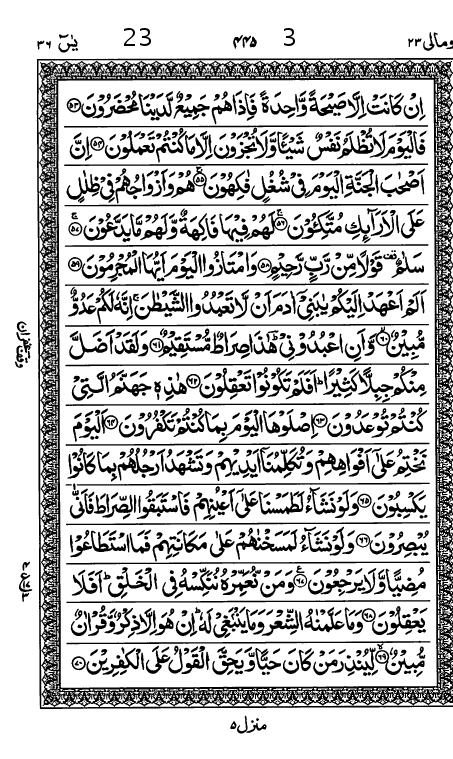 ومالی ۲۳ 3 ۴۴۵ 23 یٰسٓ ۳۶
اِنْ كَانَتْ اِلَّا صَيْحَةً وَّاحِدَةً فَاِذَا هُمْ جَمِيْعٌ لَّدَيْنَا مُحْضَرُوْنَ ۝۵۳
فَالْيَوْمَ لَا تُظْلَمُ نَفْسٌ شَيْـًٔا وَّلَا تُجْزَوْنَ اِلَّا مَا كُنْتُمْ تَعْمَلُوْنَ ۝۵۴ اِنَّ
اَصْحٰبَ الْجَنَّةِ الْيَوْمَ فِيْ شُغُلٍ فٰكِهُوْنَ ۝۵۵ هُمْ وَاَزْوَاجُهُمْ فِيْ ظِلٰلٍ
عَلَى الْاَرَآىِٕكِ مُتَّكِـُٔوْنَ ۝۵۶ لَهُمْ فِيْهَا فَاكِهَةٌ وَّلَهُمْ مَّا يَدَّعُوْنَ ۝۵۷
سَلٰمٌ ۟ قَوْلًا مِّنْ رَّبٍّ رَّحِيْمٍ ۝۵۸ وَامْتَازُوا الْيَوْمَ اَيُّهَا الْمُجْرِمُوْنَ ۝۵۹
اَلَمْ اَعْهَدْ اِلَيْكُمْ يٰبَنِيْٓ اٰدَمَ اَنْ لَّا تَعْبُدُوا الشَّيْطٰنَ ۚ اِنَّهٗ لَكُمْ عَدُوٌّ
مُّبِيْنٌ ۝۶۰ وَّاَنِ اعْبُدُوْنِيْ ؔ هٰذَا صِرَاطٌ مُّسْتَقِيْمٌ ۝۶۱ وَلَقَدْ اَضَلَّ
مِنْكُمْ جِبِلًّا كَثِيْرًا ؕ اَفَلَمْ تَكُوْنُوْا تَعْقِلُوْنَ ۝۶۲ هٰذِهٖ جَهَنَّمُ الَّتِيْ
كُنْتُمْ تُوْعَدُوْنَ ۝۶۳ اِصْلَوْهَا الْيَوْمَ بِمَا كُنْتُمْ تَكْفُرُوْنَ ۝۶۴ اَلْيَوْمَ
نَخْتِمُ عَلٰٓى اَفْوَاهِهِمْ وَتُكَلِّمُنَآ اَيْدِيْهِمْ وَتَشْهَدُ اَرْجُلُهُمْ بِمَا كَانُوْا
يَكْسِبُوْنَ ۝۶۵ وَلَوْ نَشَآءُ لَطَمَسْنَا عَلٰٓى اَعْيُنِهِمْ فَاسْتَبَقُوا الصِّرَاطَ فَاَنّٰى
يُبْصِرُوْنَ ۝۶۶ وَلَوْ نَشَآءُ لَمَسَخْنٰهُمْ عَلٰى مَكَانَتِهِمْ فَمَا اسْتَطَاعُوْا
مُضِيًّا وَّلَا يَرْجِعُوْنَ ۝۶۷ وَمَنْ نُّعَمِّرْهُ نُنَكِّسْهُ فِي الْخَلْقِ ؕ اَفَلَا
يَعْقِلُوْنَ ۝۶۸ وَمَا عَلَّمْنٰهُ الشِّعْرَ وَمَا يَنْۢبَغِيْ لَهٗ ؕ اِنْ هُوَ اِلَّا ذِكْرٌ وَّقُرْاٰنٌ
مُّبِيْنٌ ۝۶۹ لِّيُنْذِرَ مَنْ كَانَ حَيًّا وَّيَحِقَّ الْقَوْلُ عَلَى الْكٰفِرِيْنَ ۝۷۰
منزل ۵